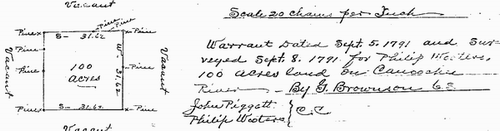 Vacant
Pine Pine
Pine S- 31.62 Pine
Vacant
Pine
100
acres
W. 31.62
Pine
Vacant
Pine S- 31.62 Pine
Vacant
Scale 20 chains per Inch
Warrant Dated Sept. 5. 1791 and Sur-
veyed Sept. 8. 1791. for Philip
100 acres land on Canoochee
River - By G. Brownson C.S.
John Piggott
Philip Wooters
C.C.